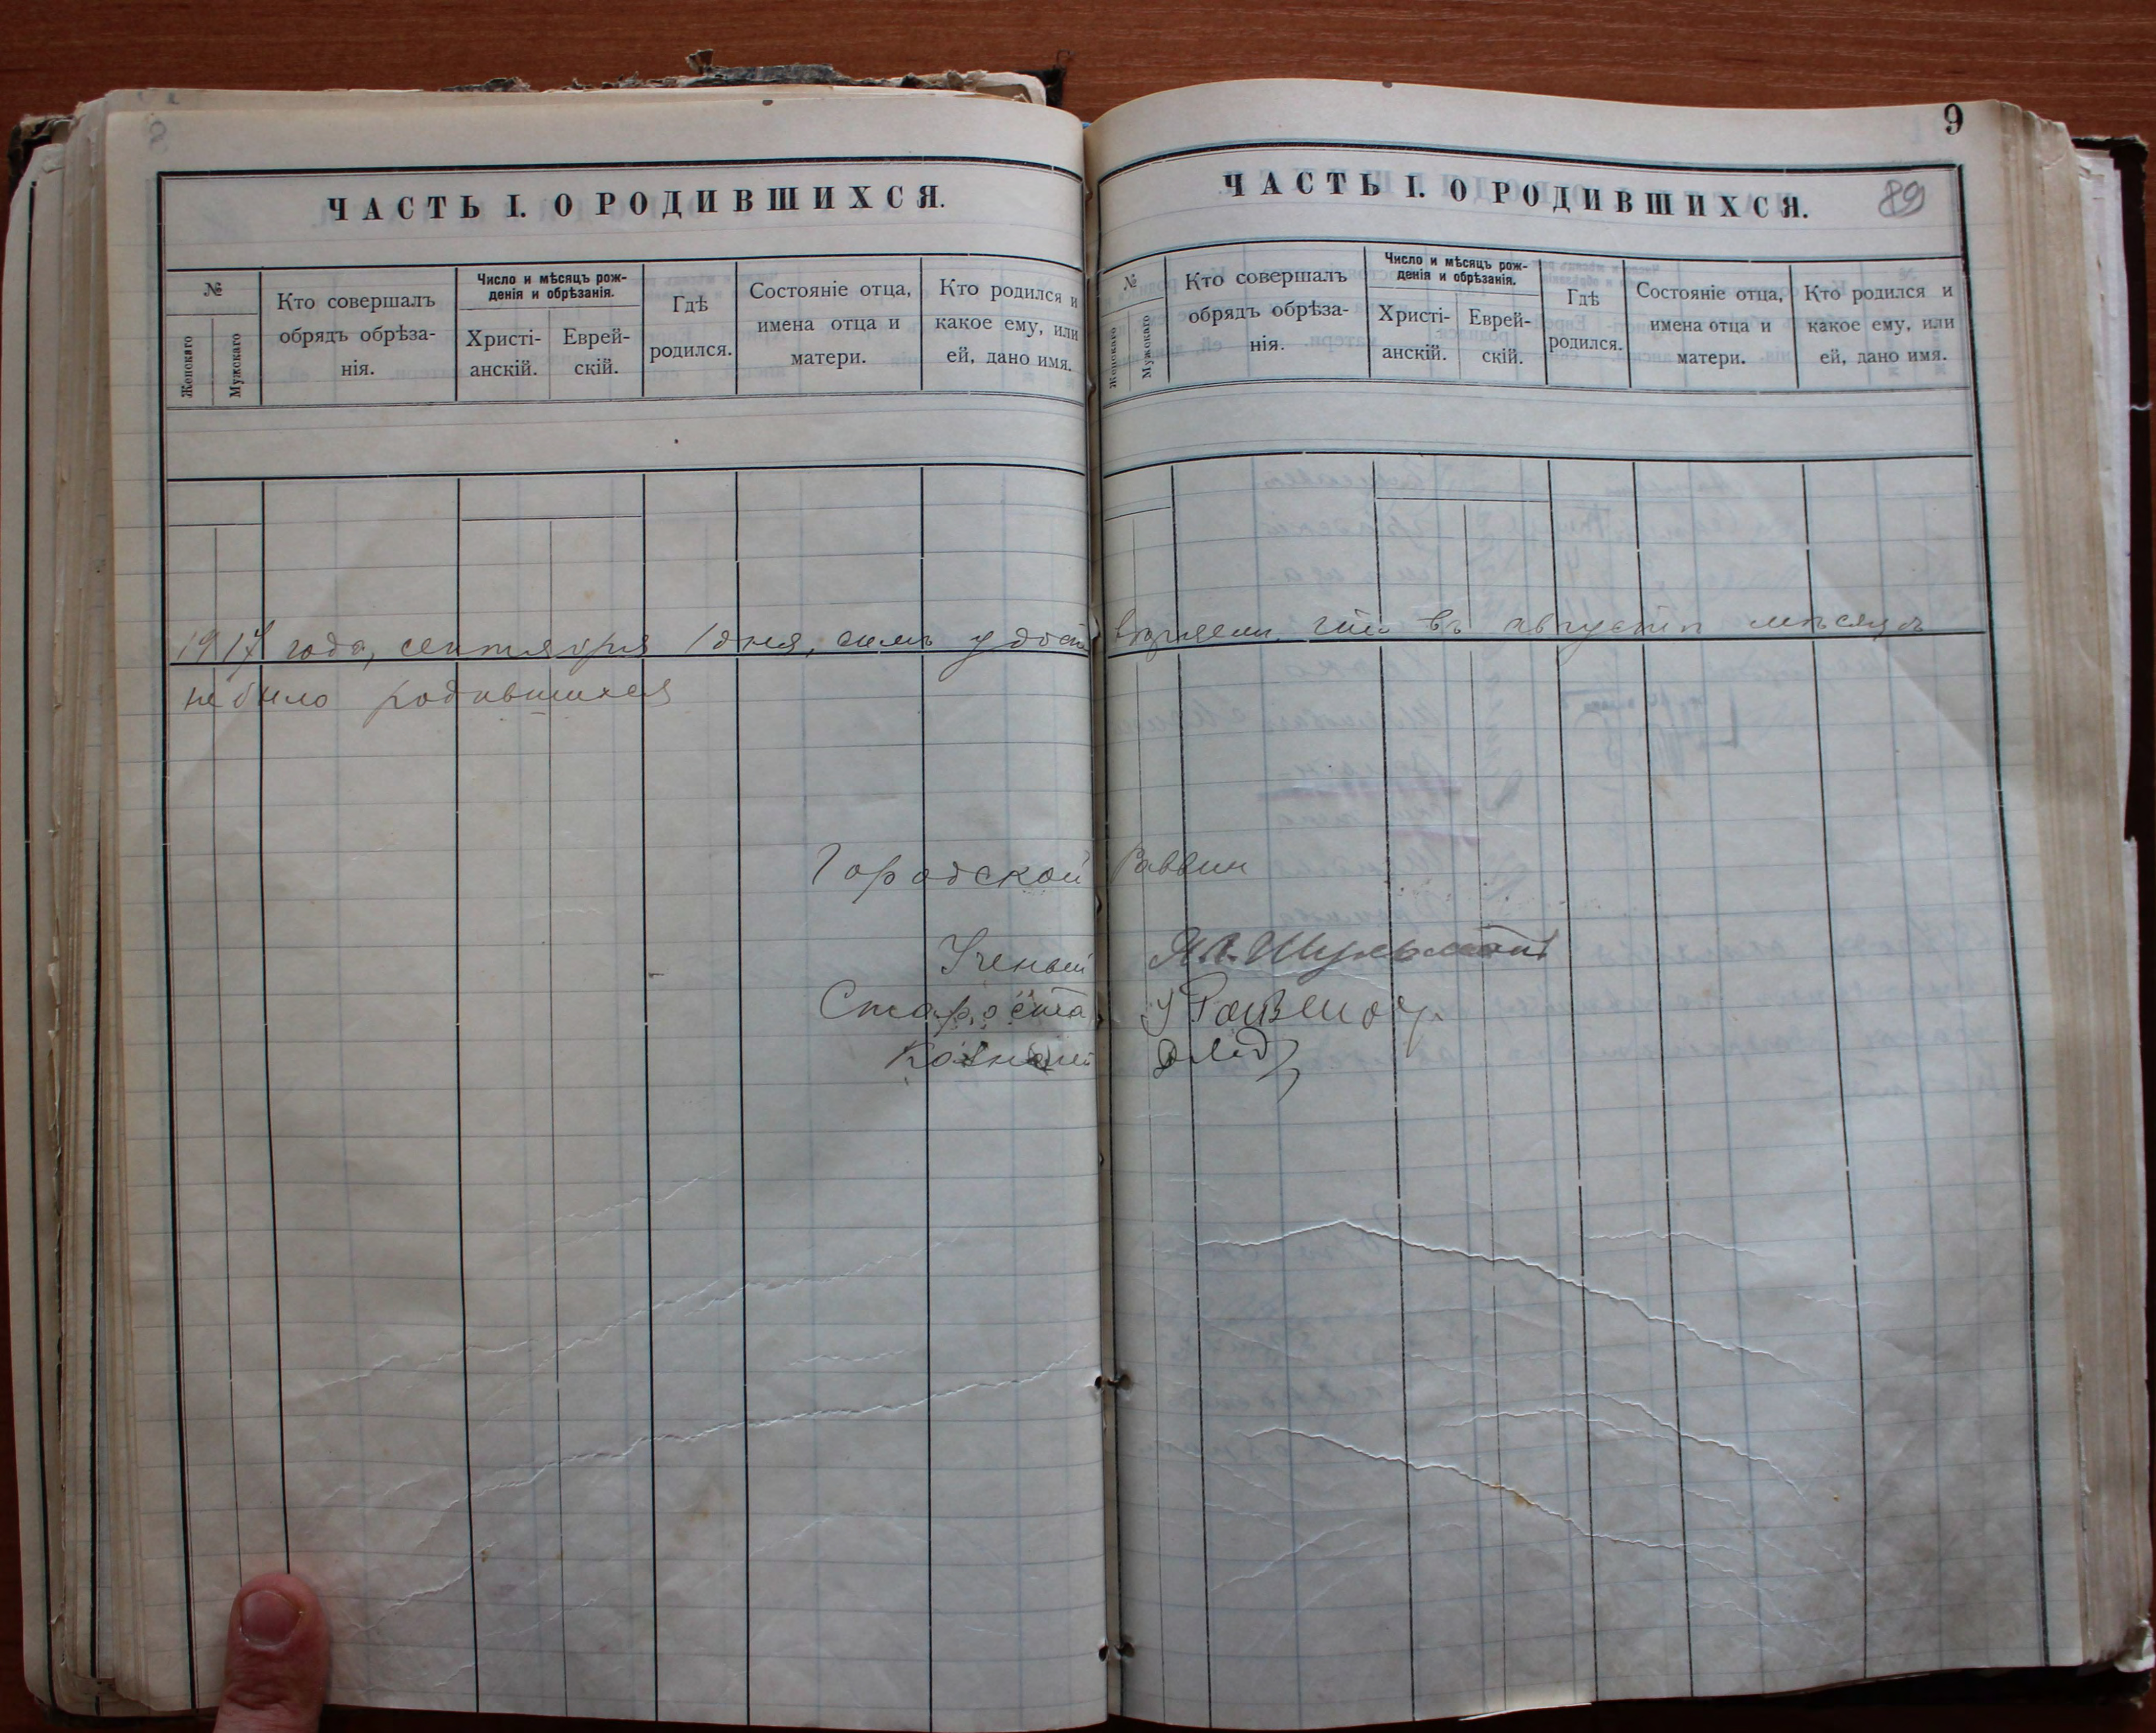 9
89
ЧАСТЬ I. О РОДИВШИХСЯ.
№
Женскаго
Мужскаго
Кто совершалъ
обрядъ обрѣза-
нія.
Число и мѣсяцъ рож-
денія и обрѣзанія.
Христі-
анскій.
Еврей-
скій.
Гдѣ
родился.
Состояніе отца,
имена отца и
матери.
Кто родился и
какое ему, или
ей, дано имя.
ЧАСТЬ I. О РОДИВШИХСЯ.
№
Женскаго
Мужскаго
Кто совершалъ
обрядъ обрѣза-
нія.
Число и мѣсяцъ рож-
денія и обрѣзанія.
Христі-
анскій.
Еврей-
скій.
Гдѣ
родился.
Состояніе отца,
имена отца и
матери.
Кто родился и
какое ему, или
ей, дано имя.
1917 года, сентября 1 дня, симъ удосто въ августѣ мѣсяцѣ
не было родившихся
Городской Раввин
Ученый Шульманъ
Староста
Казначей